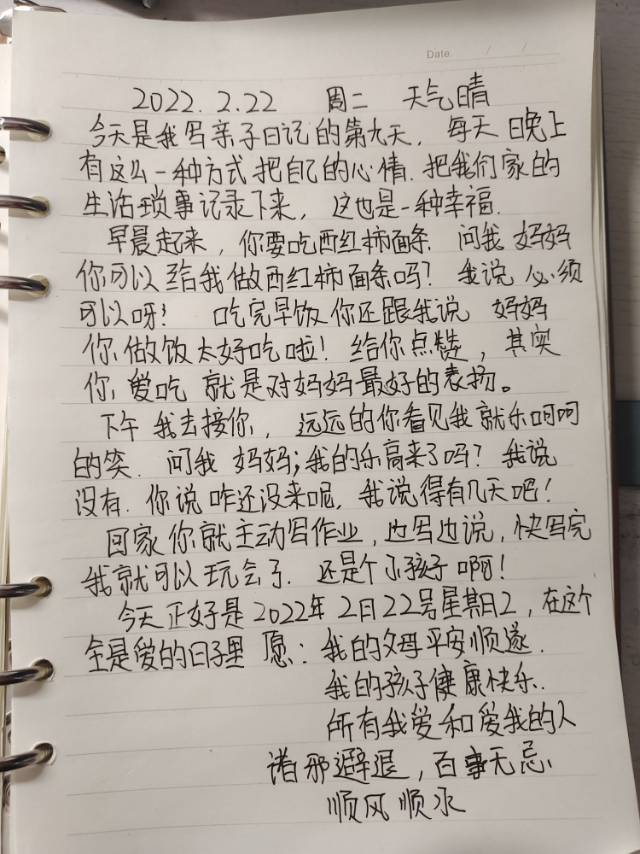 Date / /
2022.2.22 周二 天气晴
今天是我写亲子日记的第九天，每天晚上
有这么一种方式把自己的心情.把我们家的
生活琐事记录下来，这也是一种幸福.
早晨起来，你要吃西红柿面条 问我 妈妈
你可以给我做西红柿面条吗？我说 必须
可以呀！吃完早饭你还跟我说 妈妈
你做饭太好吃啦！给你点赞，其实
你爱吃 就是对妈妈最好的表扬。
下午 我去接你，远远的你看见我就乐呵呵
的笑.问我 妈妈；我的乐高来了吗？我说
没有.你说 咋还没来呢，我说得有几天吧！
回家你就主动写作业，边写边说，快写完
我就可以玩会了.还是个小孩子啊！
今天正好是2022年2月22号星期2，在这个
全是爱的日子里 愿：我的父母平安顺遂.
我的孩子健康快乐.
所有我爱和爱我的人
诸邪避退，百事无忌、
顺风顺水